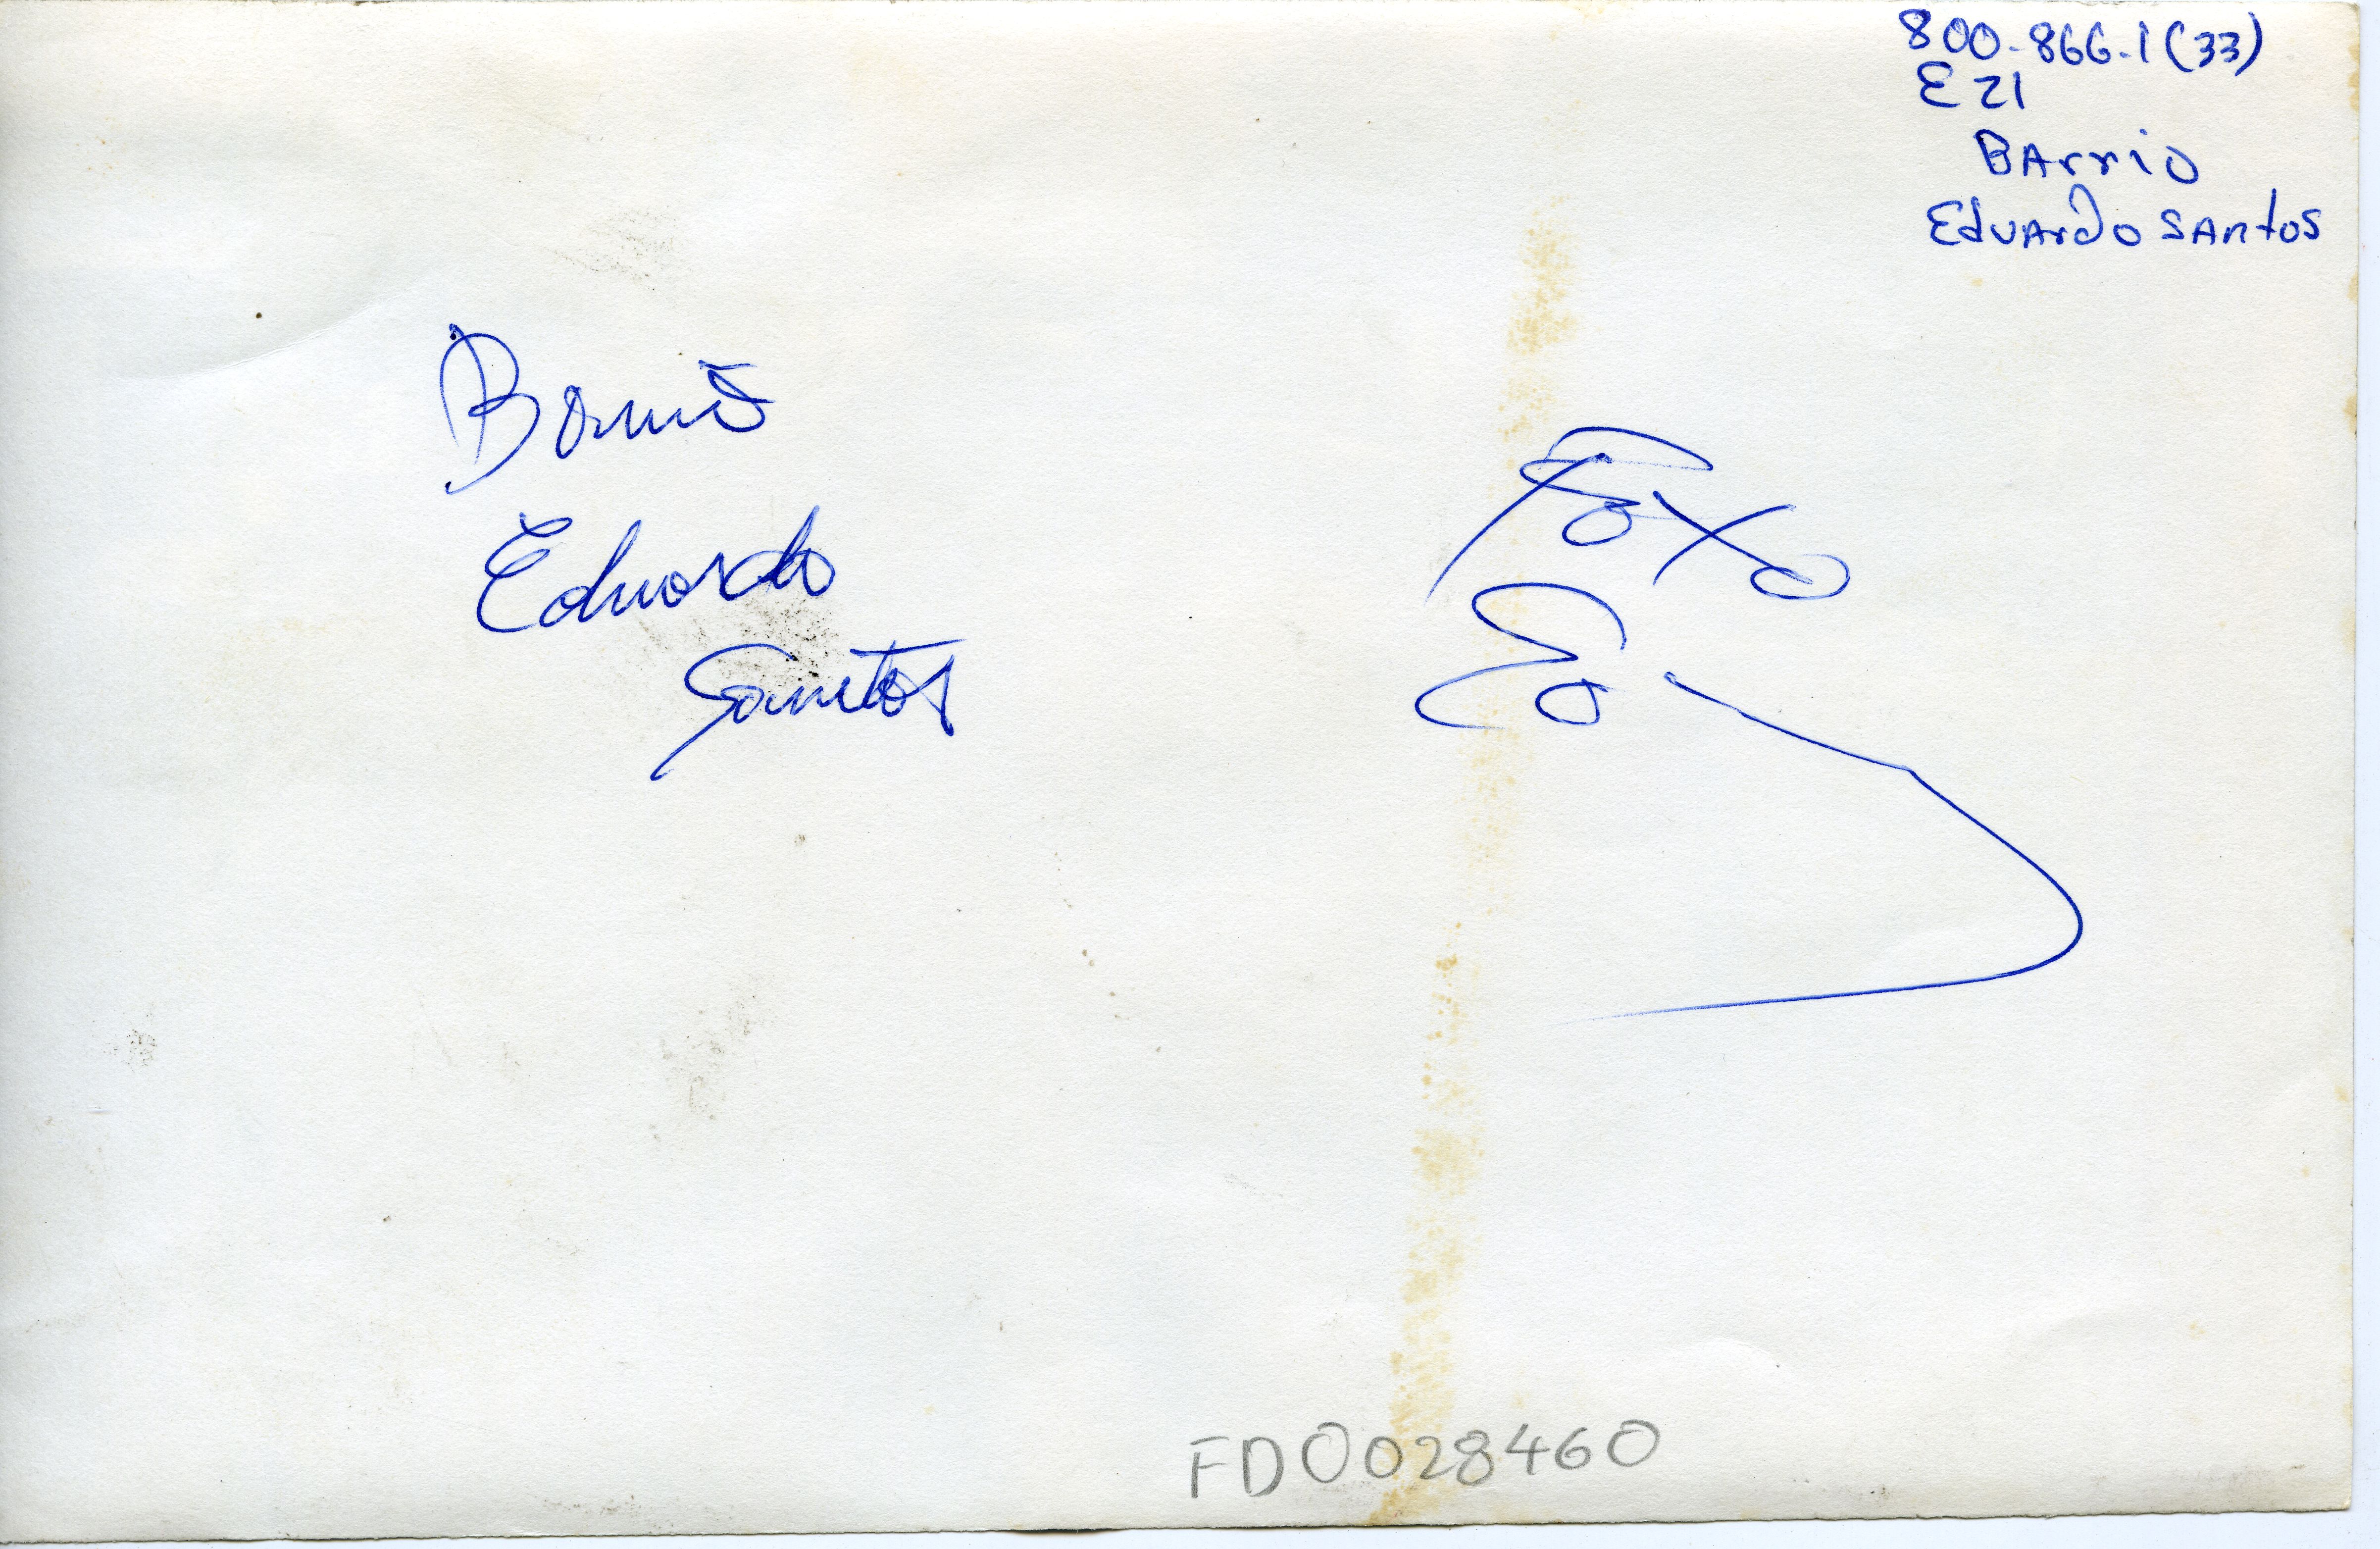 800-866-1(33)
E21
Barrio
Eduardo Santos
Barrio
Eduardo
Santos
Foto
FD0028460